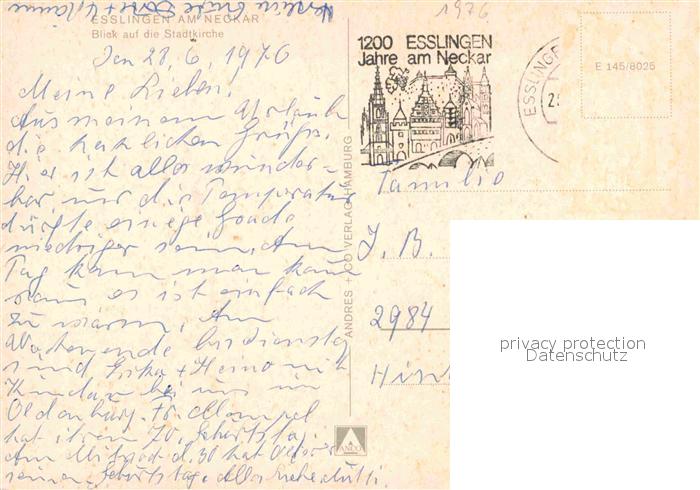 ESSLINGEN AM NECKAR
Blick auf die Stadtkirche
1976
Den 28.6.1976
Meine Lieben.
Aus meinem Urlaub
die herzlichen Grüße.
Hier ist alles wunder-
bar nur die Temperatur
dürfte einige Grade
niedriger sein. Am
Tag kann man kaum
raus es ist einfach
zu warm. Am
Wochenende bis dienstag
sind Erika + Heino mit
Kinder bei uns in
Oldenburg. Fr.
hat ihren 70. Geburtstag
Am d. 30 hat
seinen Geburtstag. Alles Liebe
1200 ESSLINGEN
Jahre am Neckar
ESSLINGE
E 145/8026
Familie
J. B.
2984
ANDRES + CO VERLAG HAMBURG
ANCO
privacy protection
Datenschutz